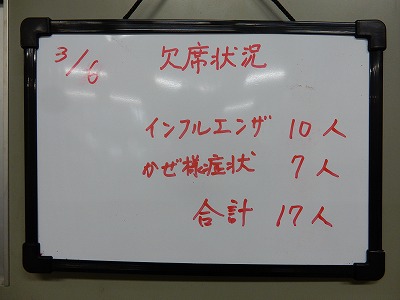 3/6 欠席状況
インフルエンザ 10人
かぜ様症状 7人
合計 17人